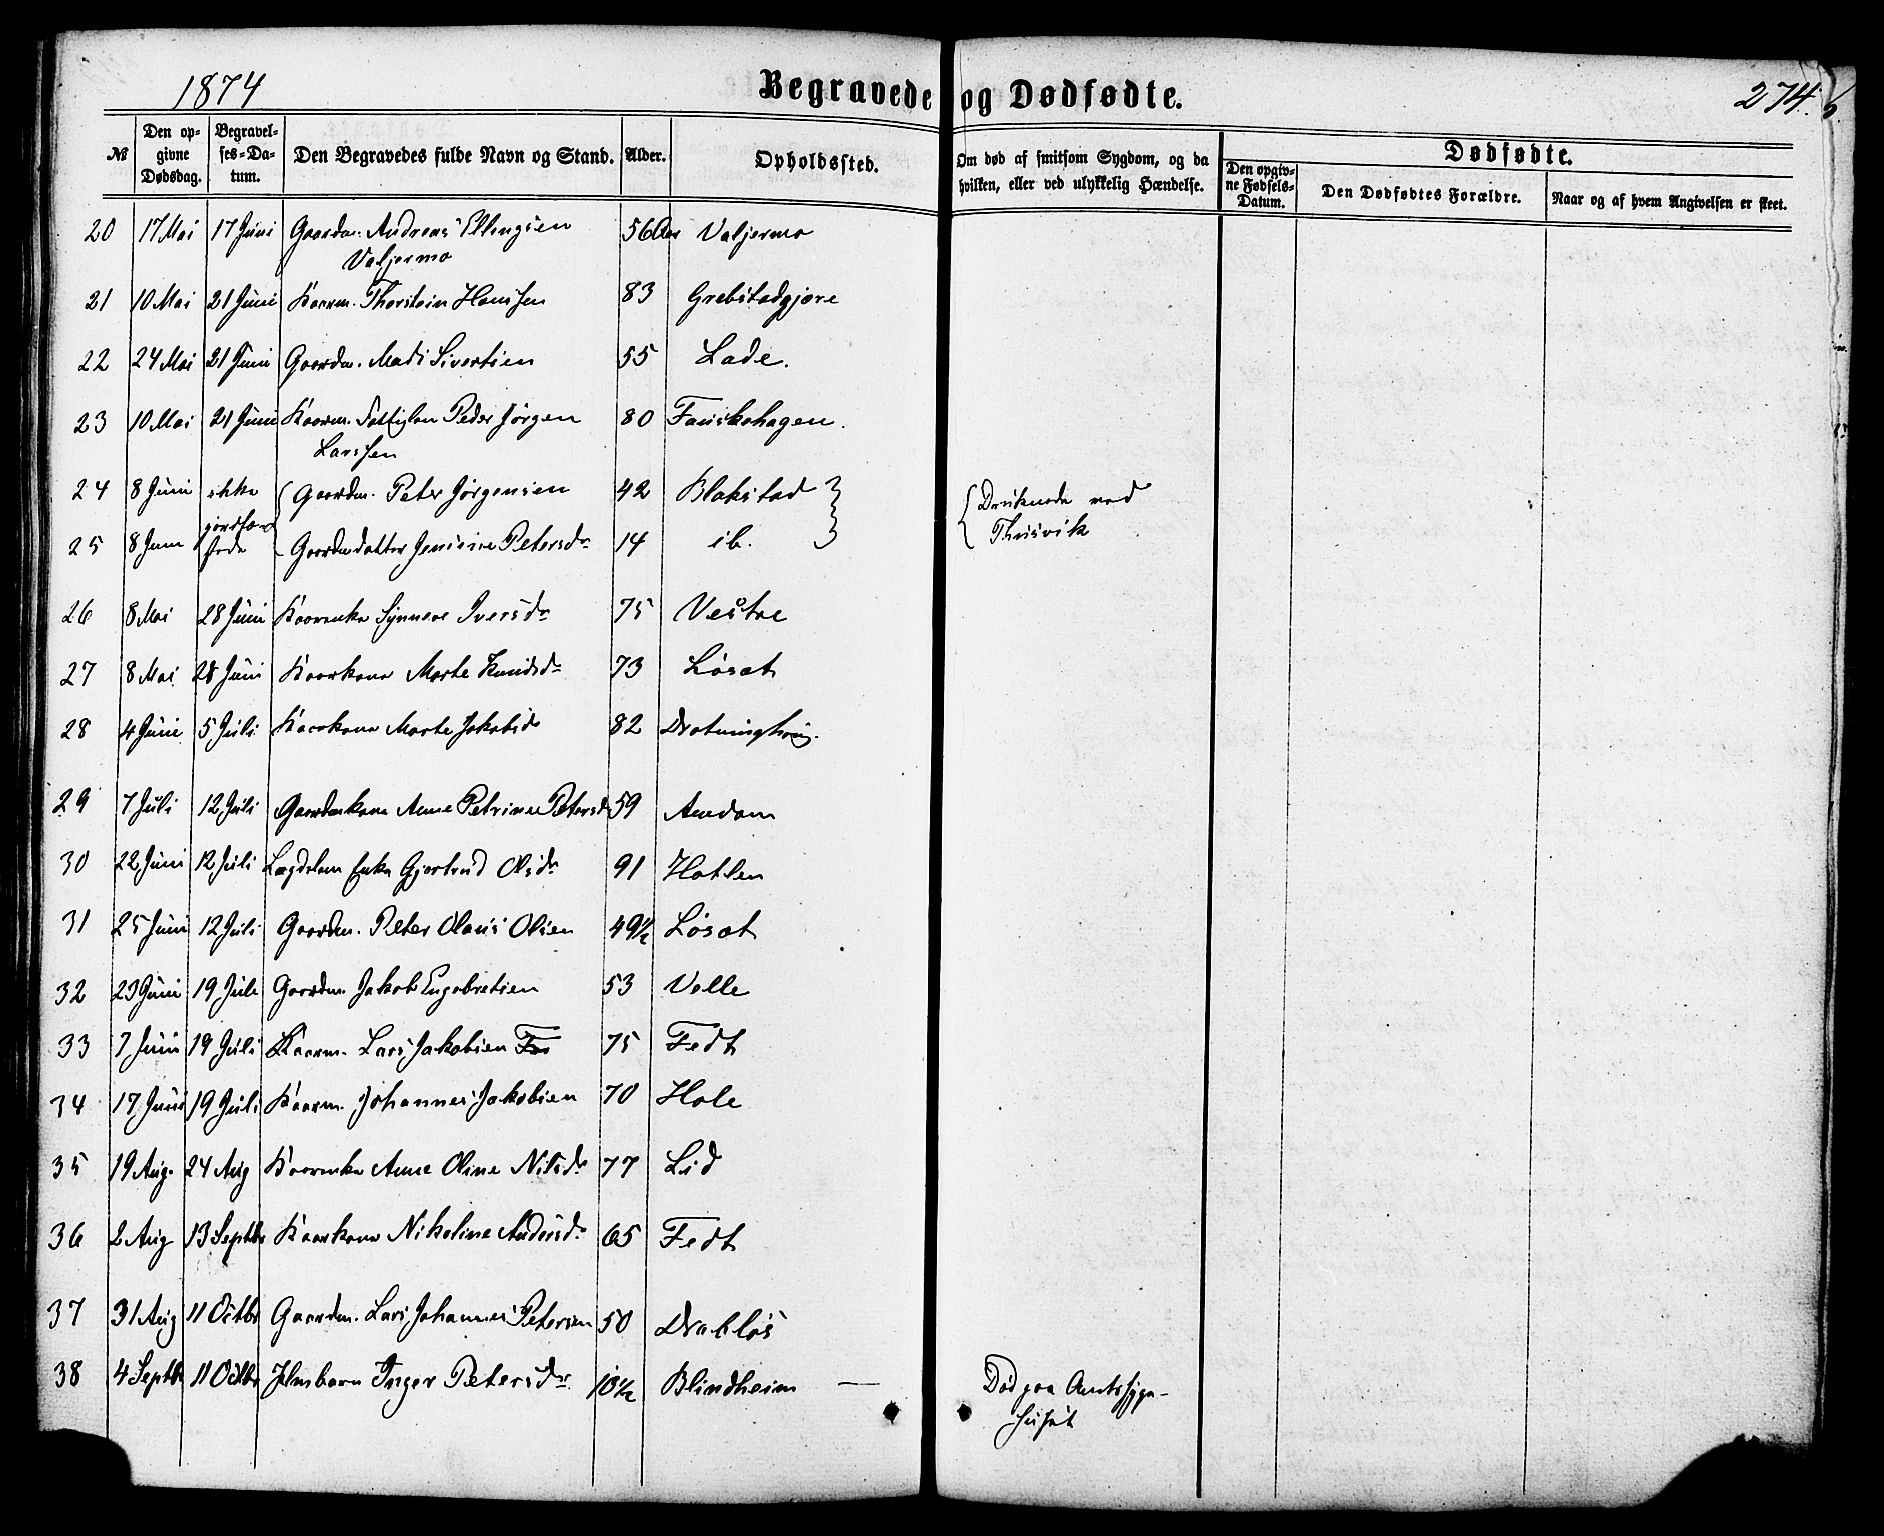 1874
Begravede og Dødfødte.
274. 6.
№ Den opgivne Dødsdag. Begravelses-Datum. Den Begravedes fulde Navn og Stand. Alder. Opholdssted. Om død af smitsom Sygdom, og da hvilken, eller ved ulykkelig Hændelse. Dødfødte.
Den opgivne Fødsels-Datum. Den Dødfødtes Forældre. Naar og af hvem Angivelsen er skeet.
20 17 Mai 17 Juni Gaardm. Andreas Ellingsen 56 Aar Valjermo
Valjermo
21 10 Mai 21 Juni Kaarm. Thorstein Hanssen 83 Grebstadgjære
22 24 Mai 21 Juni Gaardm. Mads Sivertsen 55 Lade.
23 10 Mai 21 Juni Kaarm. Peder Jørgen 80 Fauskehagen.
Larssen
24 8 Juni ikke Gaardm. Peter Jørgensen 42 Blakstad Druknede ved
25 8 Juni Gaardmdatter Jensine Petersdr 14 ib. Thusvik
26 8 Mai 28 Juni Kaarenke Synneve Iversdr 75 Vestre
27 8 Mai 28 Juni Kaarkone Marte Knudsdr 73 Løsæt
28 4 Juni 5 Juli Kaarkone Marte Jakobsdr 82
29 7 Juli 12 Juli Gaardmkone Anne Petrine Petersdr 59 Amdam
30 22 Juni 12 Juli Lægdslem Enke Gjertrud Olsdr 91 Hatlen
31 25 Juni 12 Juli Gaardm. Peter Olaus Olsen 49½ Løsæt
32 23 Juni 19 Juli Gaardm. Jakob Engebretsen 53 Valle
33 7 Juni 19 Juli Kaarm. Lars Jakobsen 75 Fedt
34 17 Juni 19 Juli Kaarm. Johannes Jakobsen 70 Hole
35 19 Aug. 24 Aug Kaarenke Anne Oline Nilsdr 77 Lid
36 2 Aug 13 Septbr Kaarkone Nikoline Andersdr 65 Fedt
37 31 Aug 11 Octbr Gaardm. Lars Johannes Petersen 50 Drabløs
38 4 Septbr 11 Octbr Inger Petersdr 10½ Blindheim — Død paa Amtssyge-
huset